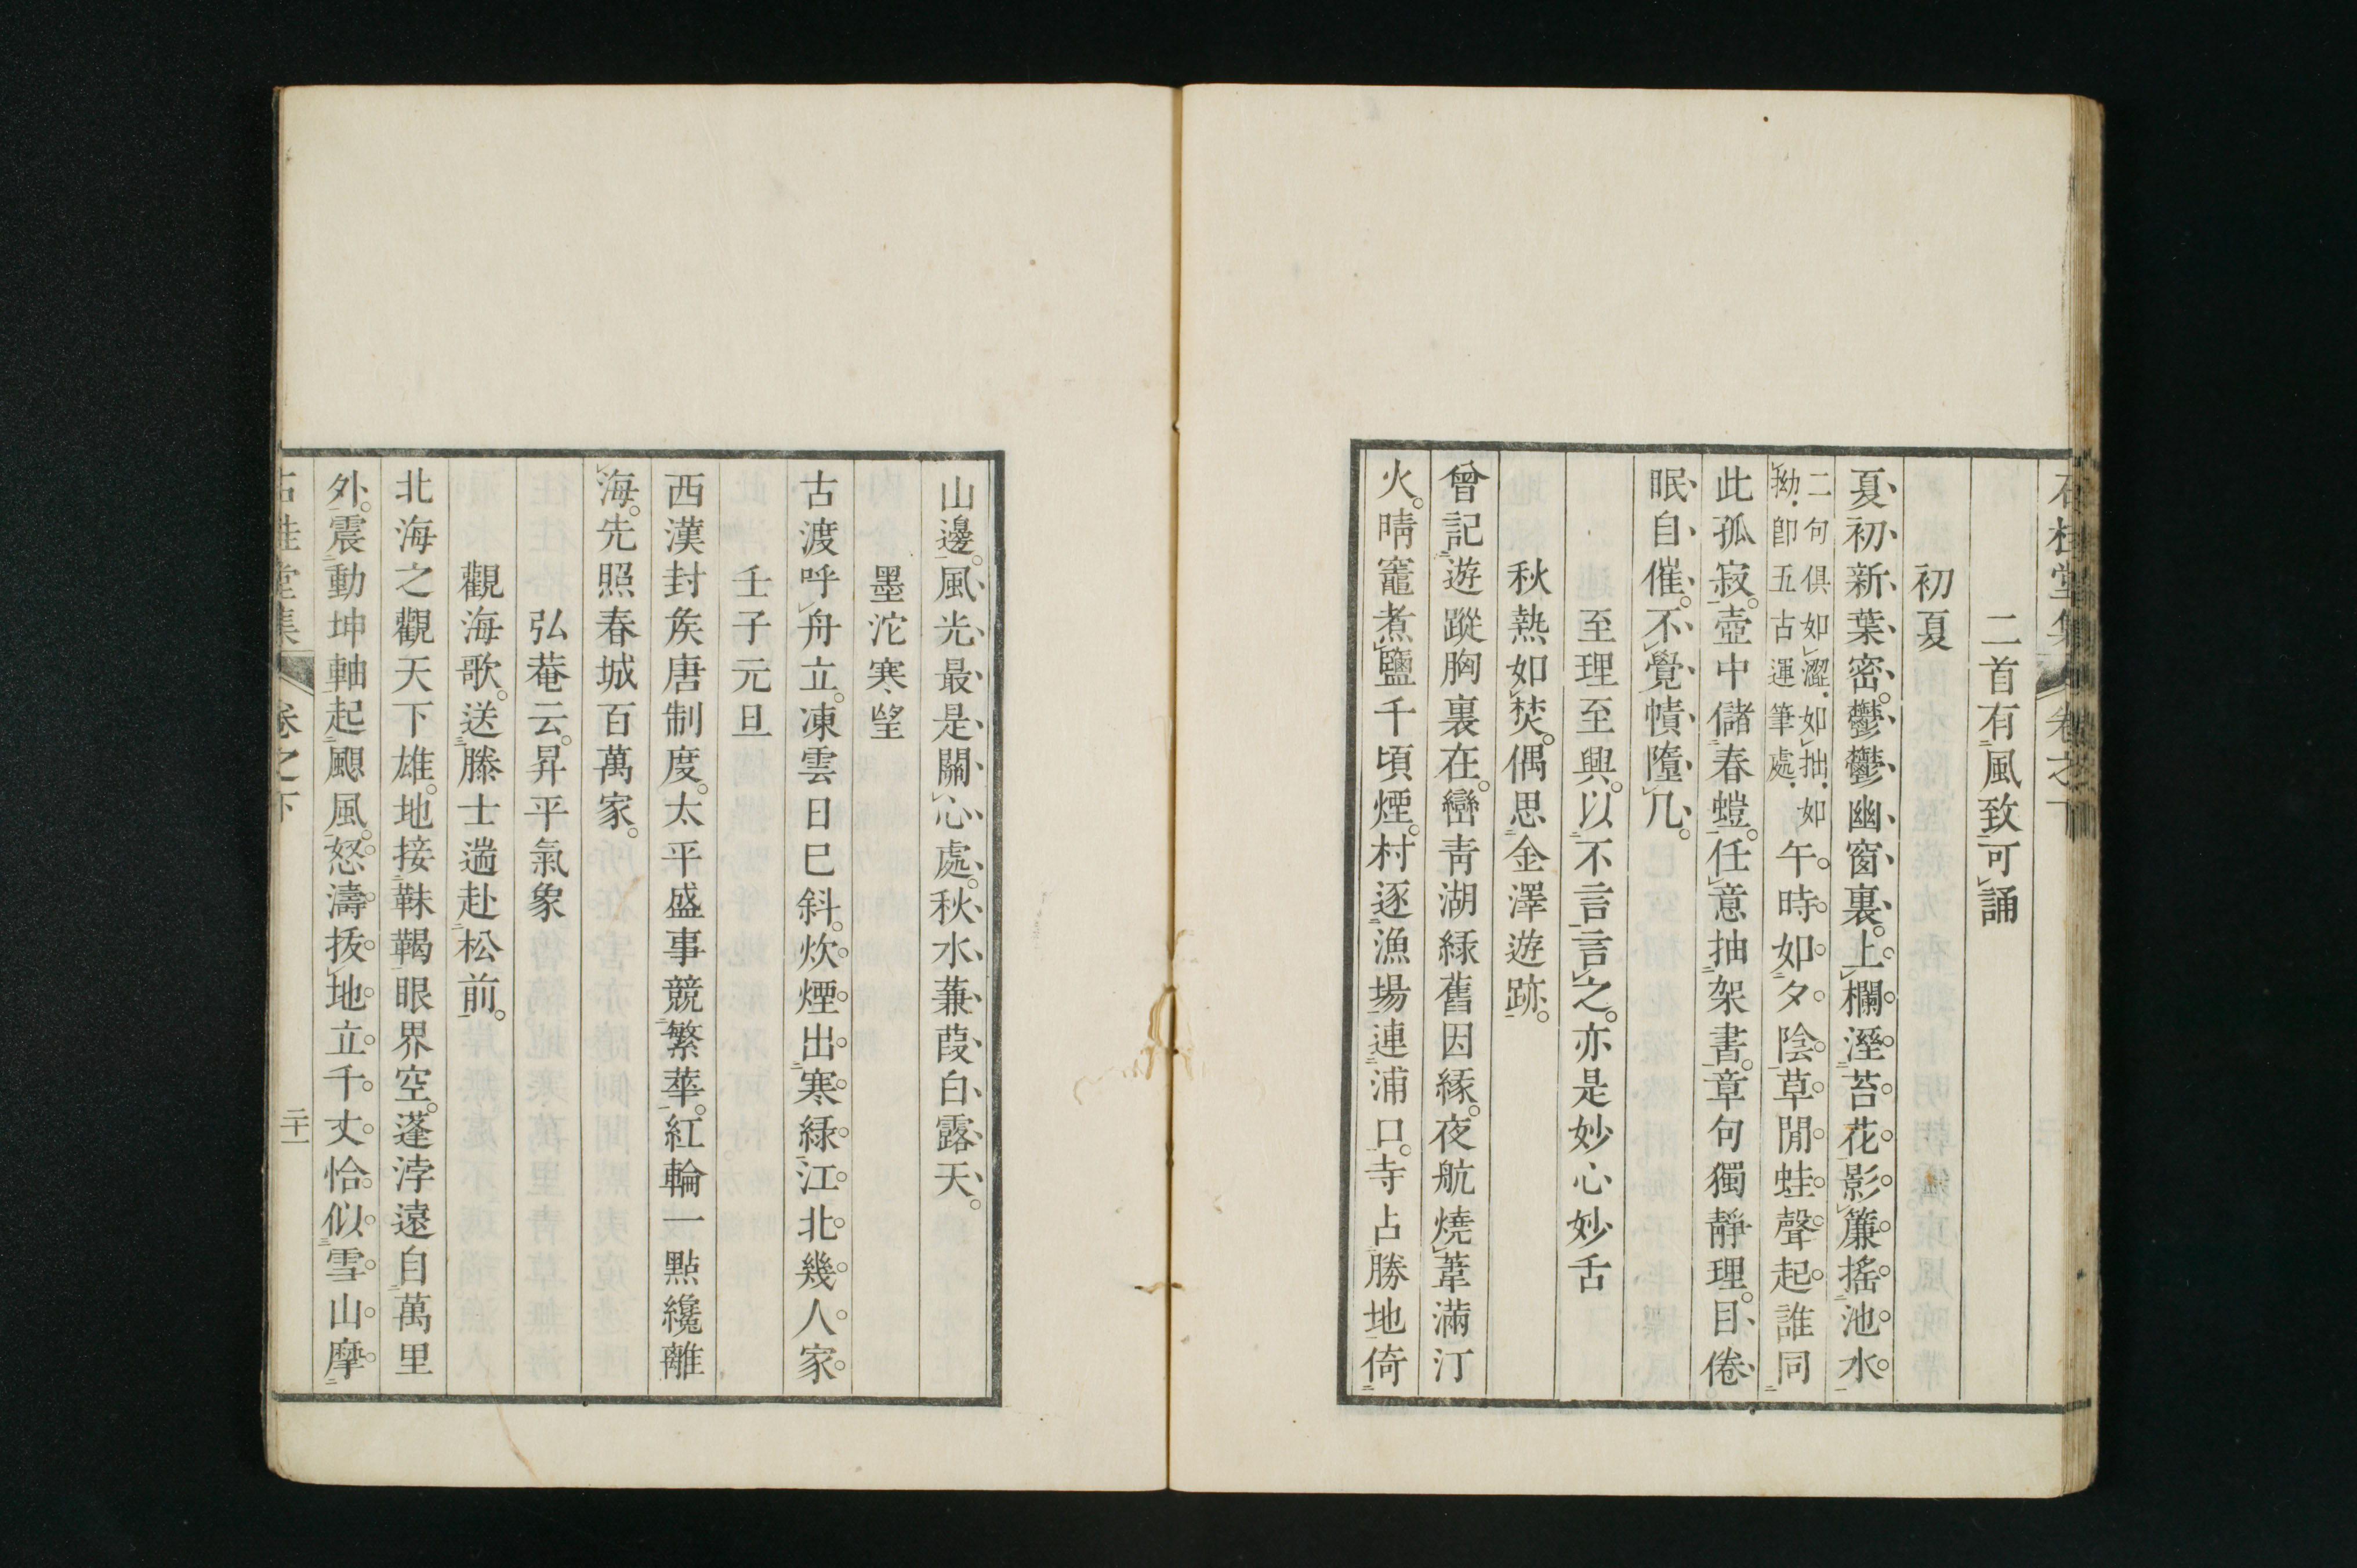 石桂堂集 卷之下
二首有風致可誦
初夏
夏初新葉密。鬱鬱幽窗裏。上欄溼苔花。影簾搖池水
二句俱如澀。如拙。如
拗。卽五古運筆處。
午時如夕陰。草間蛙聲起。誰同
此孤寂。壺中儲春螘。任意抽架書。章句獨靜理。目倦
眠自催。不覺幘墮几。
至理至興。以不言言之。亦是妙心妙舌
秋熱如焚。偶思金澤遊跡。
曾記遊蹤胸裏在。巒青湖綠舊因緣。夜航燒葦滿汀
火。晴竈煮鹽千頃煙。村逐漁場連浦口。寺占勝地倚
山邊。風光最是關心處。秋水蒹葭白露天。
墨沱寒望
古渡呼舟立。凍雲日已斜。炊煙出寒綠。江北幾人家
壬子元旦
西漢封矦唐制度。太平盛事競繁華。紅輪一點纔離
海。先照春城百萬家。
弘菴云。昇平氣象
觀海歌。送滕士遄赴松前。
北海之觀天下雄。地接靺鞨眼界空。蓬浡遠自萬里
外。震動坤軸起颶風。怒濤拔地立千丈。恰似雪山摩
石桂堂集 卷之下 二十一